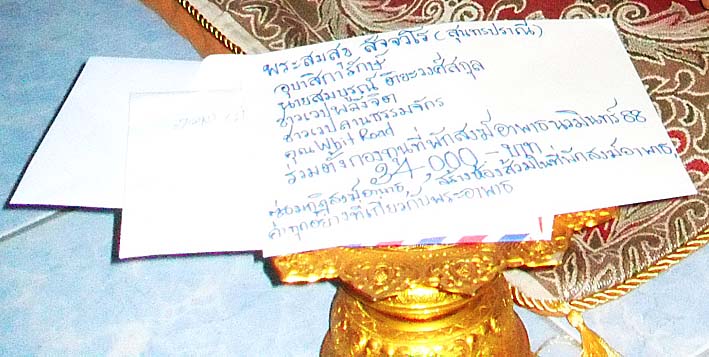 พระสมสข สจฺจวโร (สุนทรปราณี)
อุบาสิการักษ์
นายสมบูรณ์ ติยะวงศ์สกุล
ชาวเวปพลังจิต
ชาวเวปลานธรรมจักร
คุณ Whit Road
รวมตั้งกองทุนที่พักสงฆ์อาพาธนวมินทร์ 88
24,000 - บาท
สงฆ์อาพาธ, สร้างห้องสุขาในที่พักสงฆ์อาพาธ,
ทุกอย่างที่เกี่ยวกับพระอาพาธ